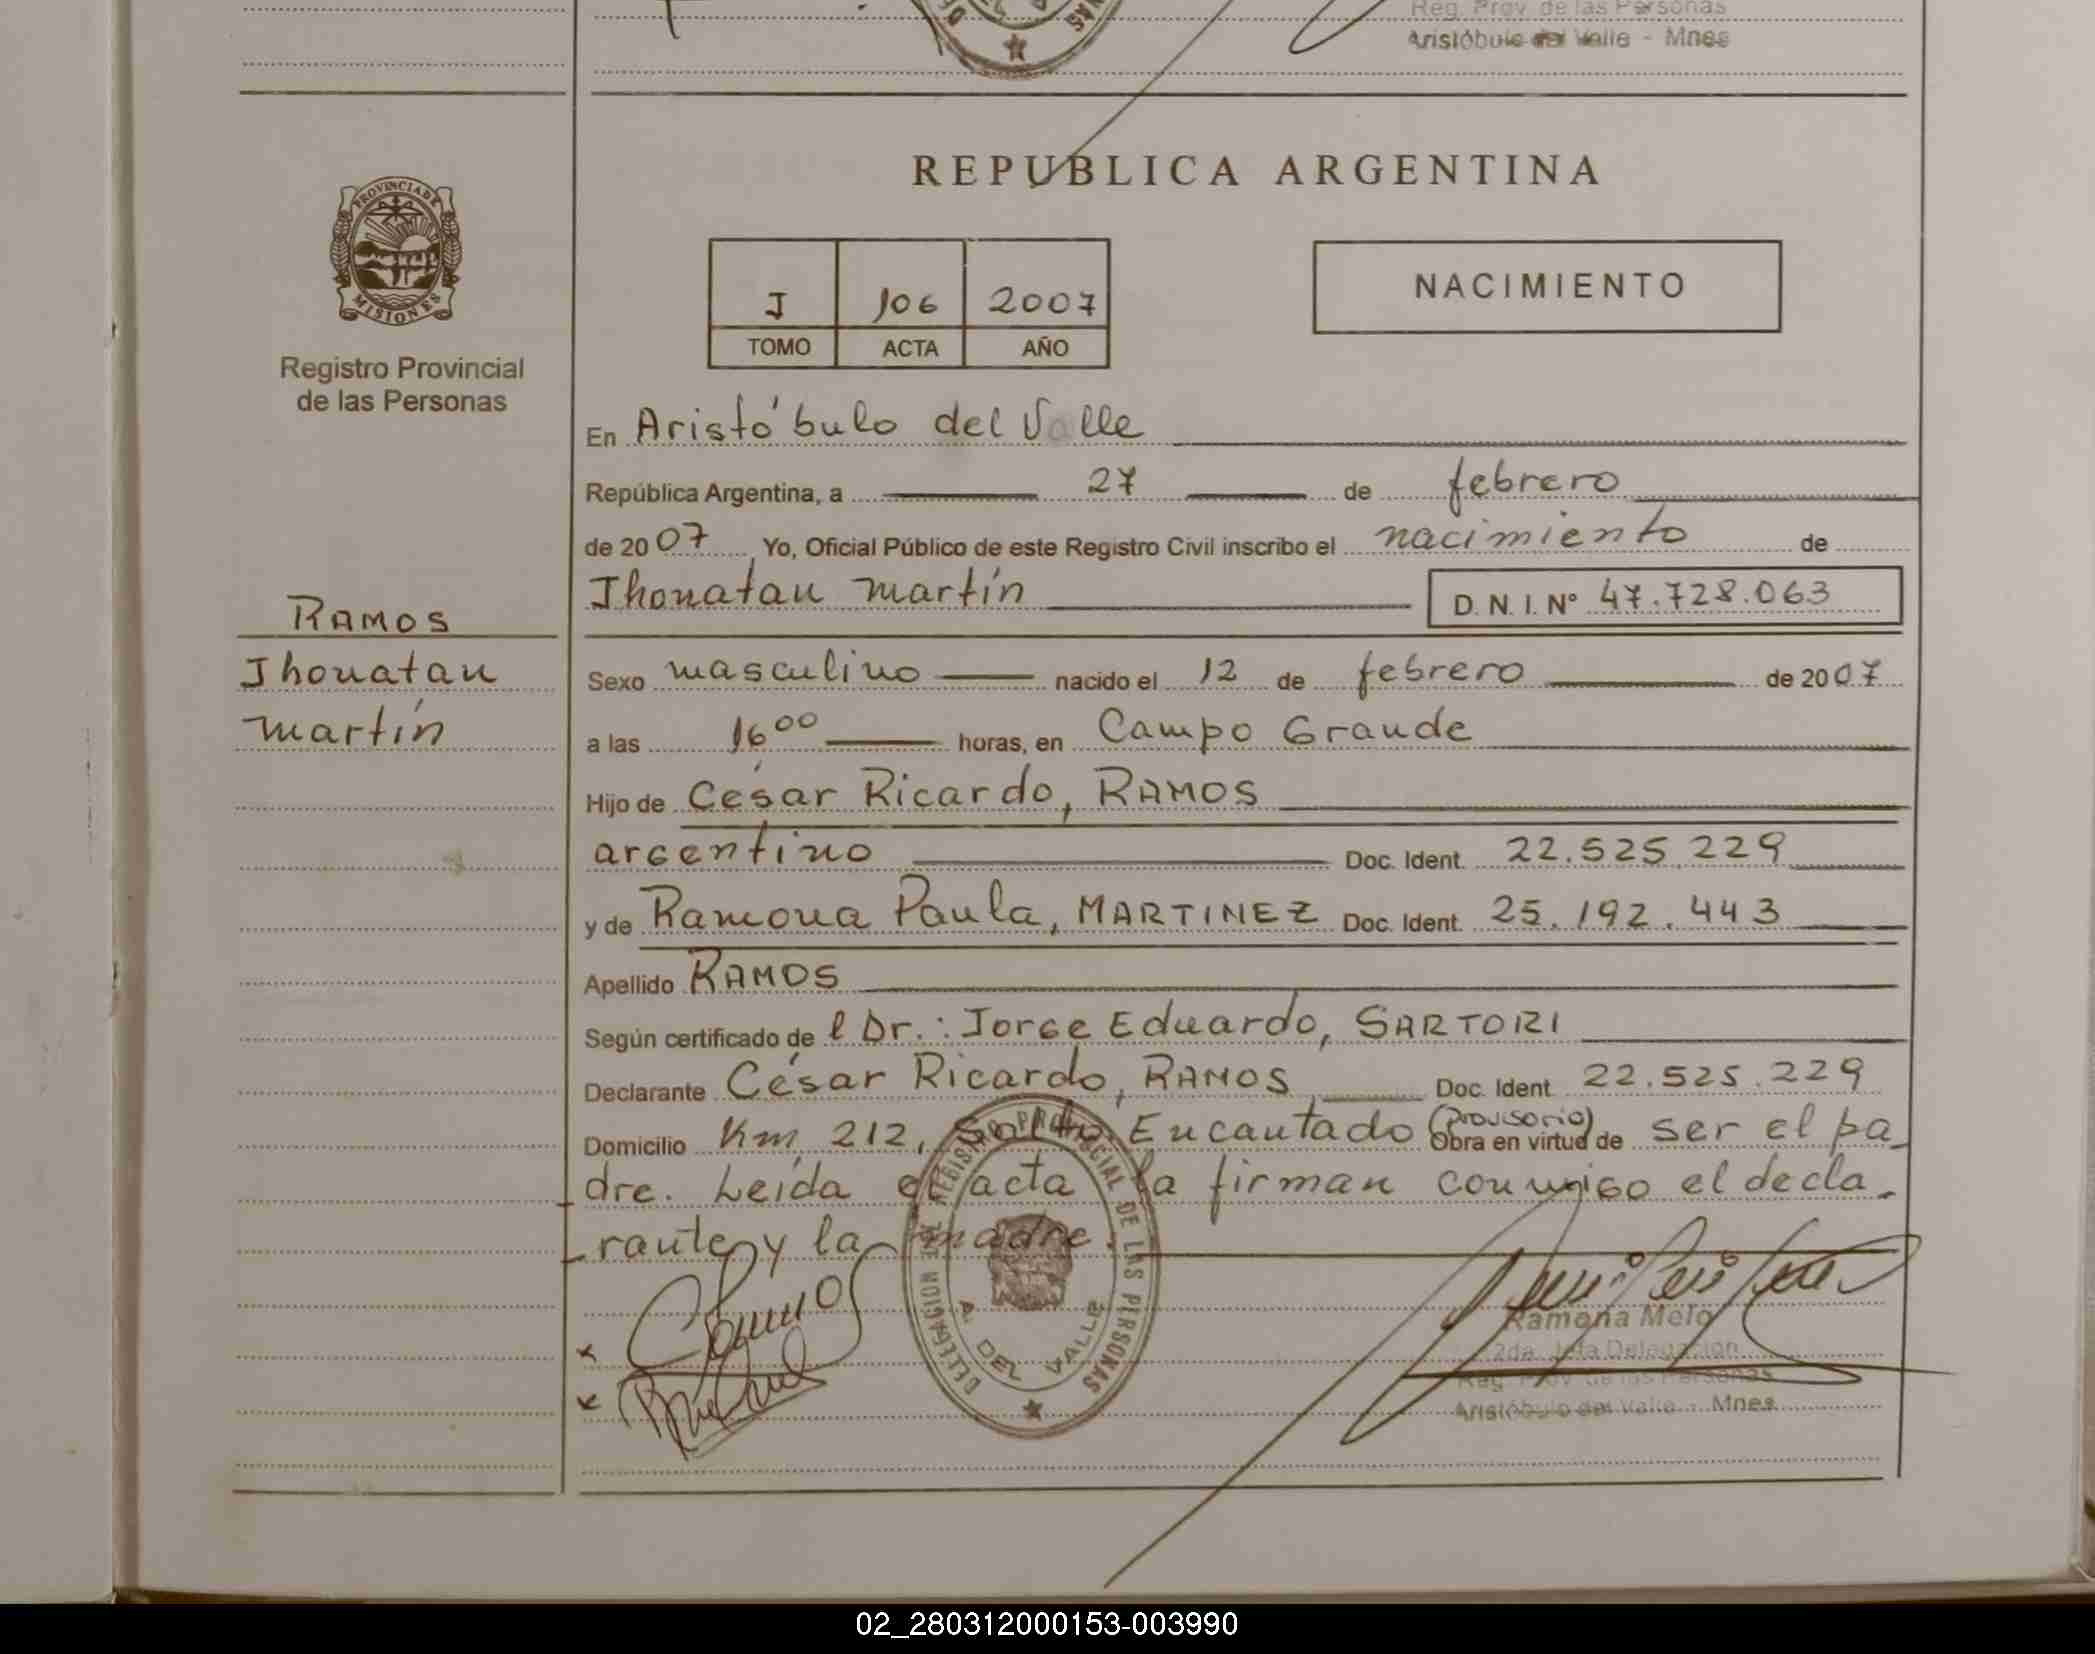 Reg. Prov. de las Personas
Aristóbulo del Valle - Mnes
REPUBLICA ARGENTINA
PROVINCIA DE
MISIONES
Registro Provincial
de las Personas
I 106 2007
TOMO ACTA AÑO
NACIMIENTO
En Aristóbulo del Valle
República Argentina, a 27 de febrero
de 2007 Yo, Oficial Público de este Registro Civil inscribo el nacimiento de
Jhonatan martín D. N. I. Nº 47.728.063
RAMOS
Jhonatan
martín
Sexo masculino nacido el 12 de febrero de 2007
a las 16⁰⁰ horas, en Campo Grande
Hijo de César Ricardo, RAMOS
argentino Doc. Ident. 22.525.229
y de Ramona Paula, MARTINEZ Doc. Ident. 25.192.443
Apellido RAMOS
Según certificado de l Dr.: Jorge Eduardo, SARTORI
Declarante César Ricardo, RAMOS Doc. Ident 22.525.229
Domicilio Km 212, Salto Encantado (Provisorio) Obra en virtud de ser el pa-
dre. Leída el acta la firman conmigo el decla-
rante y la madre.
DELEGACION DE REGISTRO PROVINCIAL DE LAS PERSONAS
A. DEL VALLE
Ramona Melo
2da. Jefa Delegación
Reg. Prov. de las Personas
Aristóbulo del Valle - Mnes
02_280312000153-003990